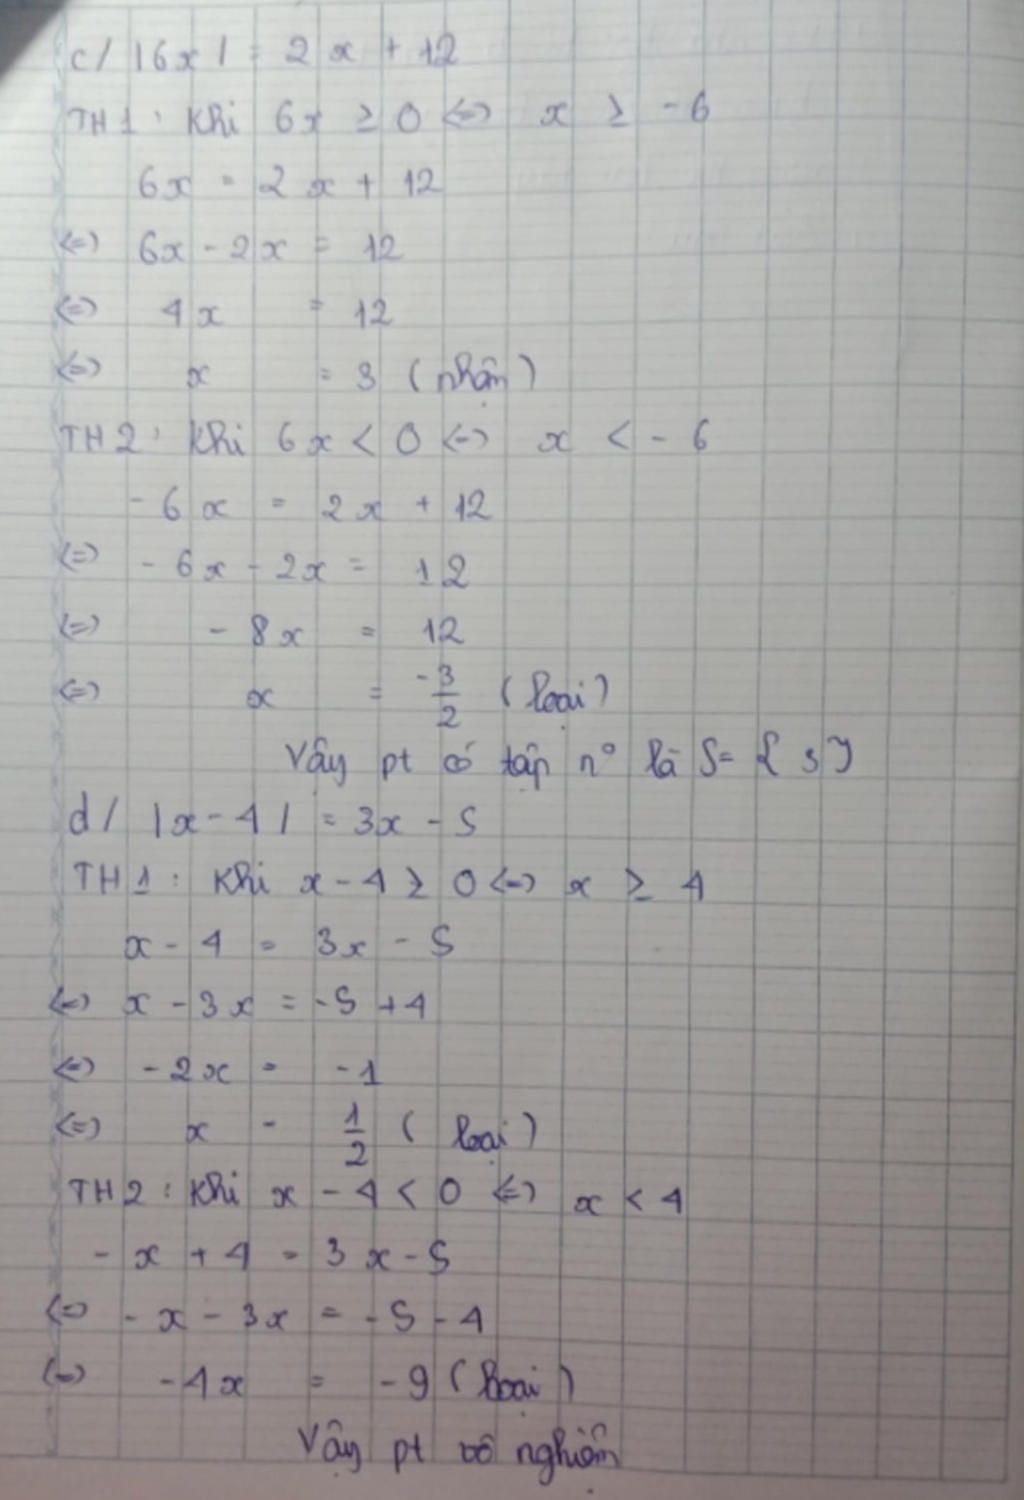 c/ |6x| = 2x + 12
TH1: Khi 6x ≥ 0 <=> x ≥ -6
6x = 2x + 12
<=> 6x - 2x = 12
<=> 4x = 12
<=> x = 3 (nhận)
TH2: Khi 6x < 0 <=> x < -6
-6x = 2x + 12
<=> -6x - 2x = 12
<=> -8x = 12
<=> x = -3/2 (loại)
Vậy pt có tập n° là S = {3}
d/ |x - 4| = 3x - 5
TH1: Khi x - 4 ≥ 0 <=> x ≥ 4
x - 4 = 3x - 5
<=> x - 3x = -5 + 4
<=> -2x = -1
<=> x = 1/2 (loại)
TH2: Khi x - 4 < 0 <=> x < 4
-x + 4 = 3x - 5
<=> -x - 3x = -5 - 4
<=> -4x = -9 (loại)
Vậy pt vô nghiệm